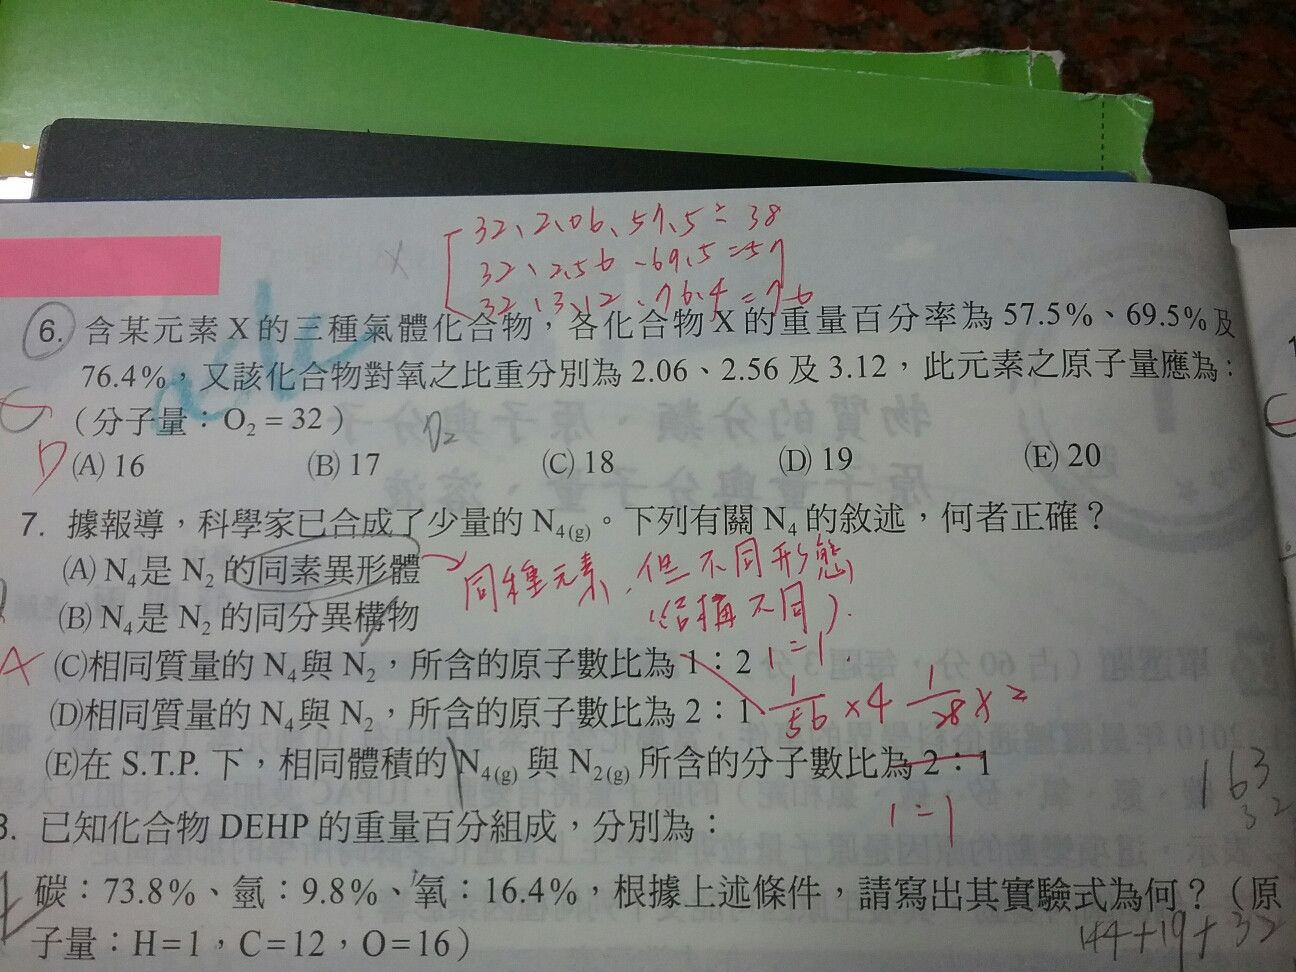 32、2.06、57.5 = 38
32、2.56、69.5 = 57
32、3.12、76.4 = 76
6. 含某元素 X 的三種氣體化合物，各化合物 X 的重量百分率為 57.5%、69.5% 及
76.4%，又該化合物對氧之比重分別為 2.06、2.56 及 3.12，此元素之原子量應為：
（分子量：O₂ = 32）
O₂
D
(A) 16 (B) 17 (C) 18 (D) 19 (E) 20
7. 據報導，科學家已合成了少量的 N₄₍g₎。下列有關 N₄ 的敘述，何者正確？
(A) N₄是 N₂ 的同素異形體
同種元素，但不同形態
(B) N₄是 N₂ 的同分異構物
(結構不同).
A
(C)相同質量的 N₄與 N₂，所含的原子數比為 1：2
1=1.
(D)相同質量的 N₄與 N₂，所含的原子數比為 2：1
1/56 ×4 1/28 ×2
(E)在 S.T.P. 下，相同體積的 N₄₍g₎ 與 N₂₍g₎ 所含的分子數比為 2：1
1=1
163
32
8. 已知化合物 DEHP 的重量百分組成，分別為：
碳：73.8%、氫：9.8%、氧：16.4%，根據上述條件，請寫出其實驗式為何？（原
子量：H=1，C=12，O=16）
144+19+32